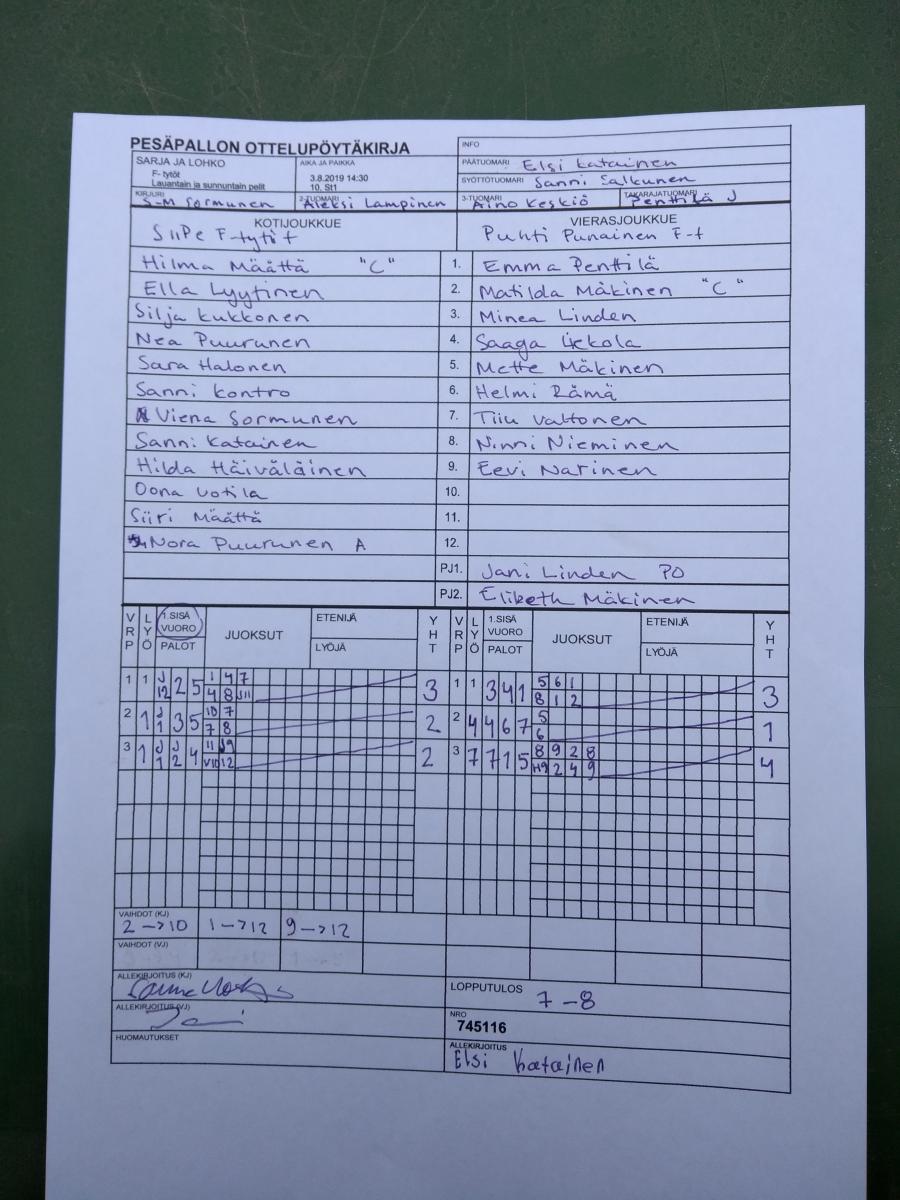 PESÄPALLON OTTELUPÖYTÄKIRJA
INFO
SARJA JA LOHKO
F- tytöt
Lauantain ja sunnuntain pelit
AIKA JA PAIKKA
3.8.2019 14:30
10, St1
PÄÄTUOMARI Elsi Katainen
SYÖTTÖTUOMARI Sanni Salkunen
KIRJURI S-M Sormunen
2-TUOMARI Aleksi Lampinen
3-TUOMARI Aino Keskiö
TAKARAJATUOMARI Penttilä J
KOTIJOUKKUE
SiiPe F-tytöt
VIERASJOUKKUE
Puhti Punainen F-t
Hilma Määttä "C" 1. Emma Penttilä
Ella Lyytinen 2. Matilda Mäkinen "C"
Silja Kukkonen 3. Minea Linden
Nea Puurunen 4. Saaga
Sara Halonen 5. Mette Mäkinen
Sanni Kontro 6. Helmi Rämä
Viena Sormunen 7. Tiiu Valtonen
Sanni Katainen 8. Ninni Nieminen
Hilda Häiväläinen 9. Eevi Narinen
Oona Votila 10.
Siiri Määttä 11.
Nora Puurunen A 12.
PJ1. Jani Linden PO
PJ2. Elibeth Mäkinen
VRP LYÖ 1.SISÄ VUORO PALOT JUOKSUT ETENIJÄ LYÖJÄ YHT VRP LYÖ 1.SISÄ VUORO PALOT JUOKSUT ETENIJÄ LYÖJÄ YHT
1 1 J12 2 5 1 4 7 3 1 1 3 4 1 5 6 1 3
4 8 J11 8 1 2
2 1 J1 3 5 10 7 2 2 4 4 6 7 5 1
7 8 6
3 1 J1 J2 4 11 J9 2 3 7 7 1 5 8 9 2 8 4
V10 12 H9 2 4 9
VAIHDOT (KJ)
2 -> 10 1 -> 12 9 -> 12
VAIHDOT (VJ)
ALLEKIRJOITUS (KJ)
LOPPUTULOS 7 - 8
ALLEKIRJOITUS (VJ)
Jani
NRO
745116
HUOMAUTUKSET
ALLEKIRJOITUS
Elsi Katainen